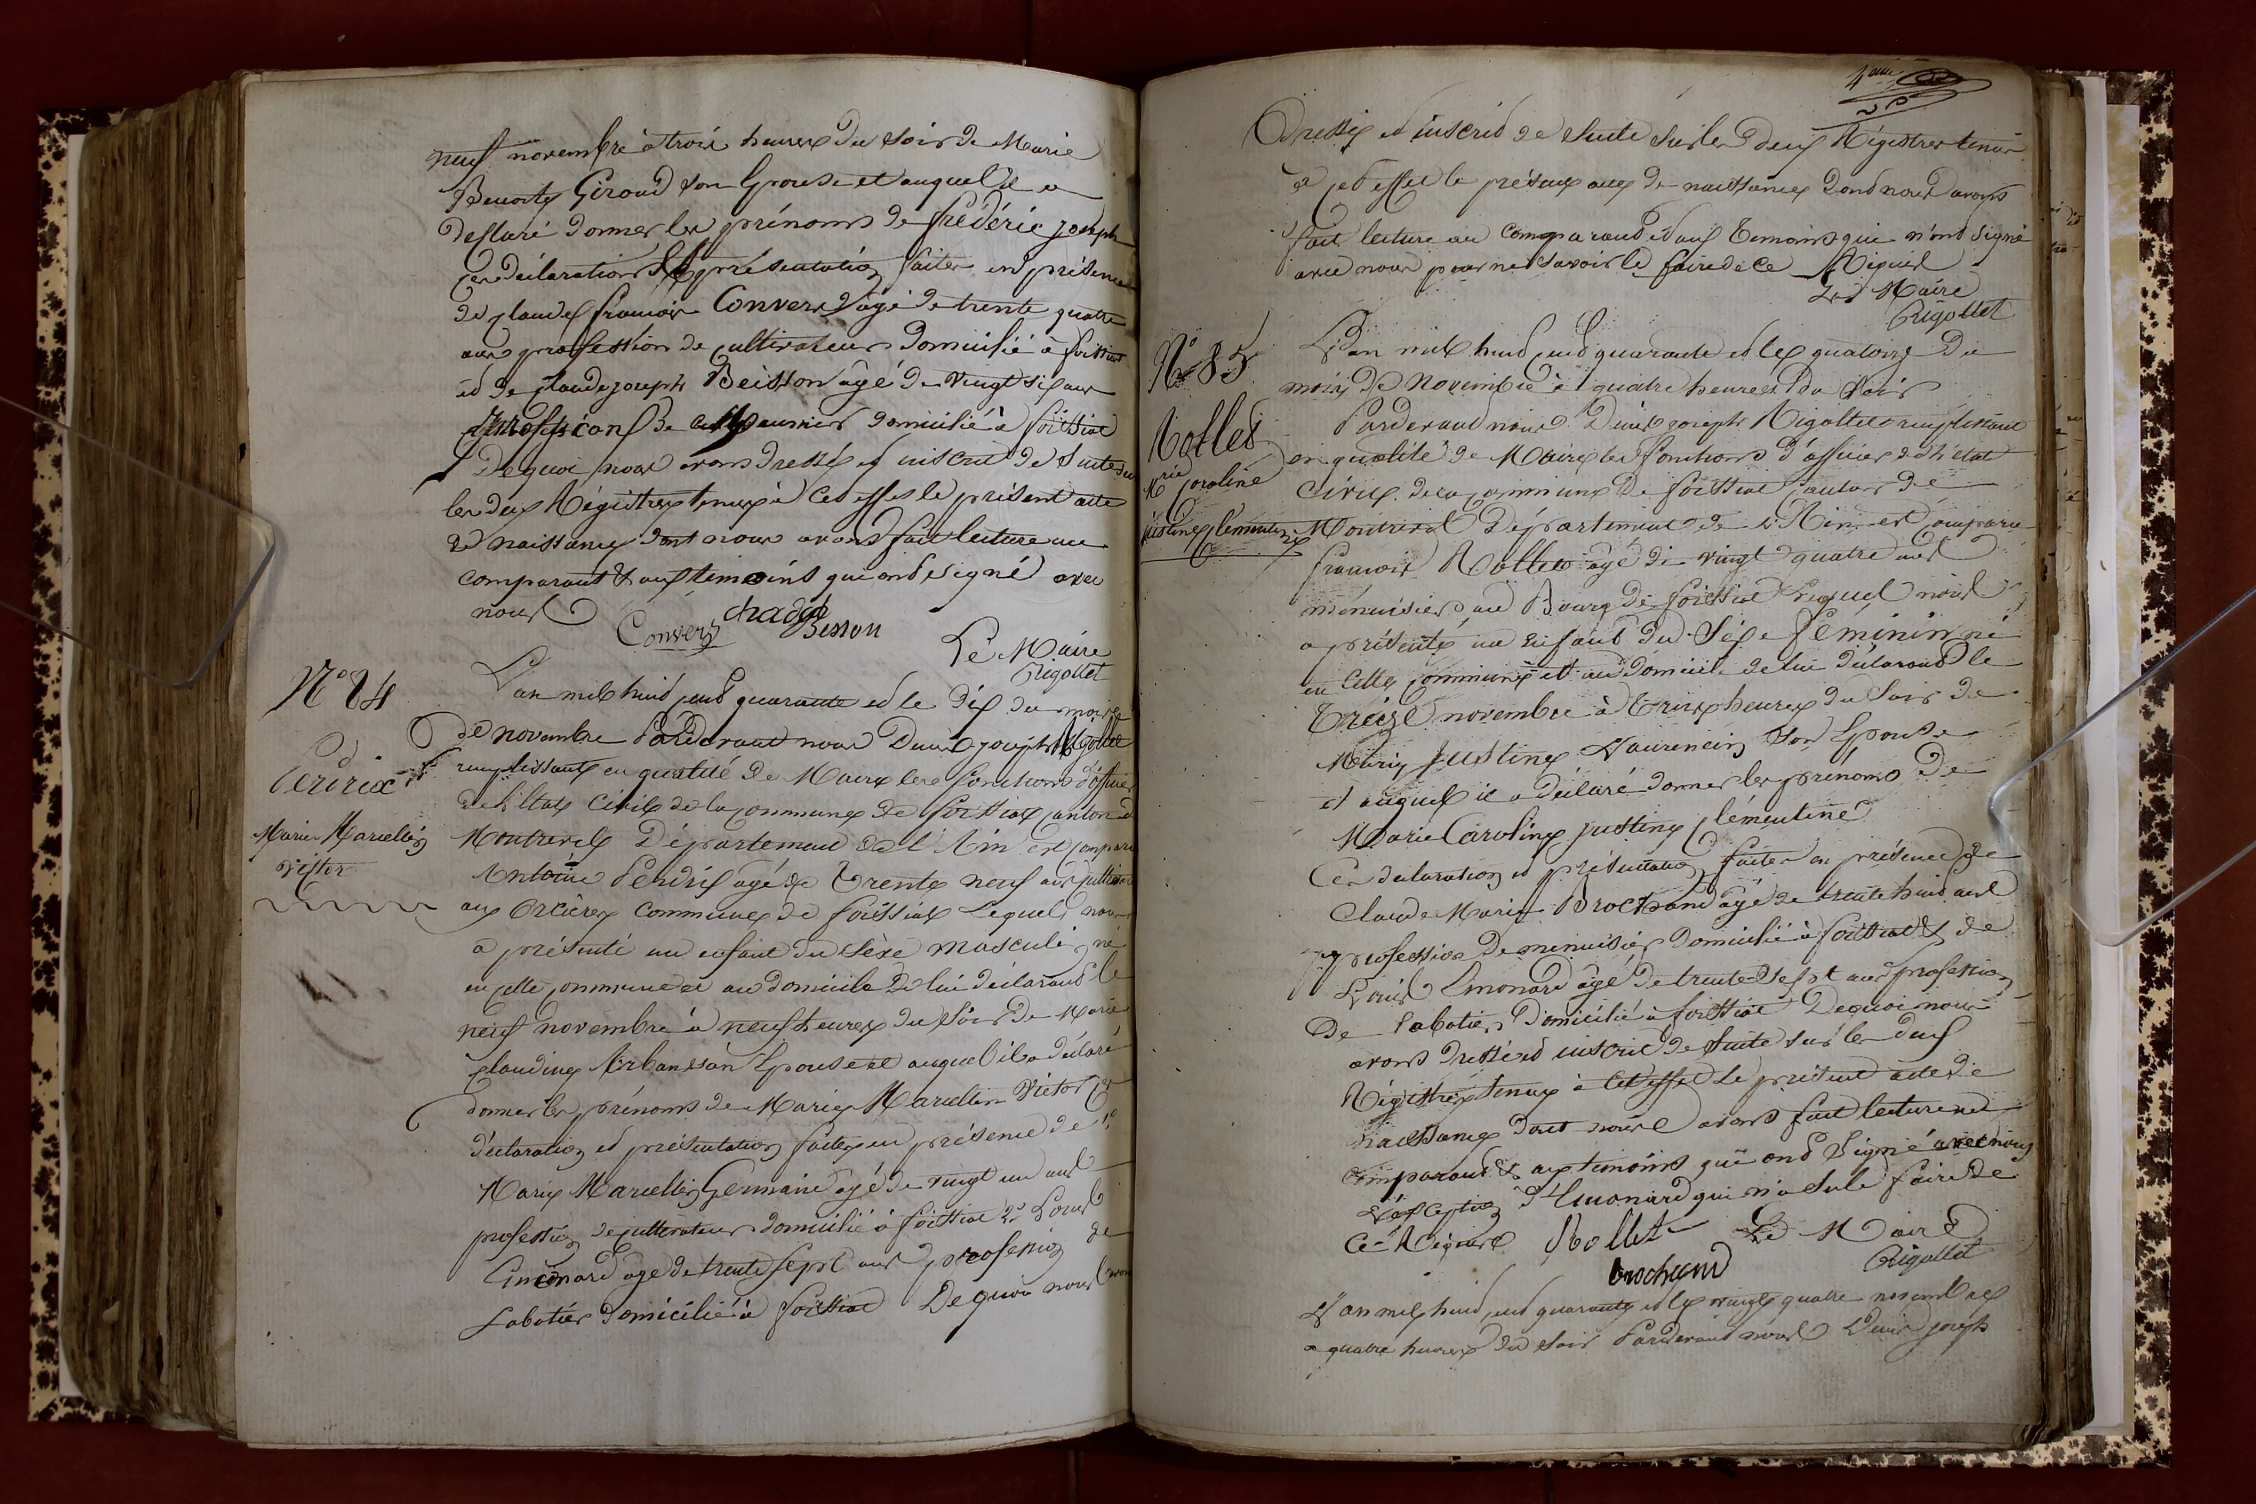 neuf novembre à trois heures du soir de Marie
Benoite Giroud son Epouse et auquel il a
déclaré donner les prénoms de frédéric joseph
ces déclaration & présentation faites en présence
de claude françois Convers âgé de trente quatre
ans profession de cultivateur domicilié à foissiat
et de claude joseph Beisson âgé de vingt six ans
profession de domicilié à foissiat
De quoi nous avons dressé et inscrit de suite sur
les deux Régistres tenus à cet effet le présent acte
de naissance dont nous avons fait lecture au
comparant & aux temoins qui ont signé avec
nous
Convers Besson
Le Maire
Rigollet
N° 84
Perdrix
Marie Marcellin
Victor
L'an mil huit cent quarante et le dix du mois
de novembre Pardevant nous Denis joseph Rigollet
remplissant en qualité de Maire les fonctions d'officier
de l'Etat Civil de la commune de foissiat canton de
Montrevel Département de l'Ain est comparu
Antoine Perdrix agé de Trente neuf ans cultivateur
aux commune de foissiat Lequel nous
a présenté un enfant du sexe masculin né
en cette commune et au domicile de lui déclarant le
neuf novembre à neuf heures du soir de Marie
claudine Arban son Epouse et auquel il a déclaré
donner les prénoms de Marie Marcellin Victor Ces
déclaration et présentation faites en présence de
Marie Marcellin Germain âgé de vingt un ans
profession de cultivateur domicilié à foissiat & de Louis
Emonard age de trente sept ans profession de
Sabotier domicilié à foissiat De quoi nous avons
4eme
Dressé et inscrit de suite sur les deux Régistres tenus
à cet effet le présent acte de naissance dont nous avons
fait lecture au comparant et aux Temoins qui n'ont signé
avec nous pour ne savoir le faire de ce Réquis
Le Maire
Rigollet
N° 85
Rollet
Mrie Caroline
justine clémentine
L'an mil huit cent quarante et le quatorze du
mois de Novembre à quatre heures du soir
Pardevant nous Denis joseph Rigollet remplissant
en qualité de Maire les fonctions d'officier de l'état
civil de la commune de foissiat canton de
Montrevel Département de l'Ain est comparu
françois Rollet agé de vingt quatre ans
menuisier au Bourg de foissiat Lequel nous
a présenté un enfant du sexe féminin né
en cette commune et au domicile de lui déclarant le
Treize novembre à Trois heures du soir de
Marie Justine Laurencin son Epouse
et auquel il a déclaré donner les prénoms de
Marie Caroline justine clémentine
Ces declaration et présentation faites en présence de
Claude Marie Brochand agé de trente huit ans
profession de menuisier domicilié à foissiat & de
Louis Emonard agé de trente sept ans profession
de Sabotier domicilié à foissiat De quoi nous
avons dressé et inscrit de suite sur les deux
Régistres tenus à cet effet le présent acte de
naissance dont nous avons fait lecture au
comparant & aux temoins qui ont signé avec nous
à l'exception d'Emonard qui n'a su le faire de
ce Réquis Rollet Le Maire
brochand Rigollet
L'an mil huit cent quarante et le vingt quatre novembre
a quatre heures du soir Pardevant nous Denis joseph